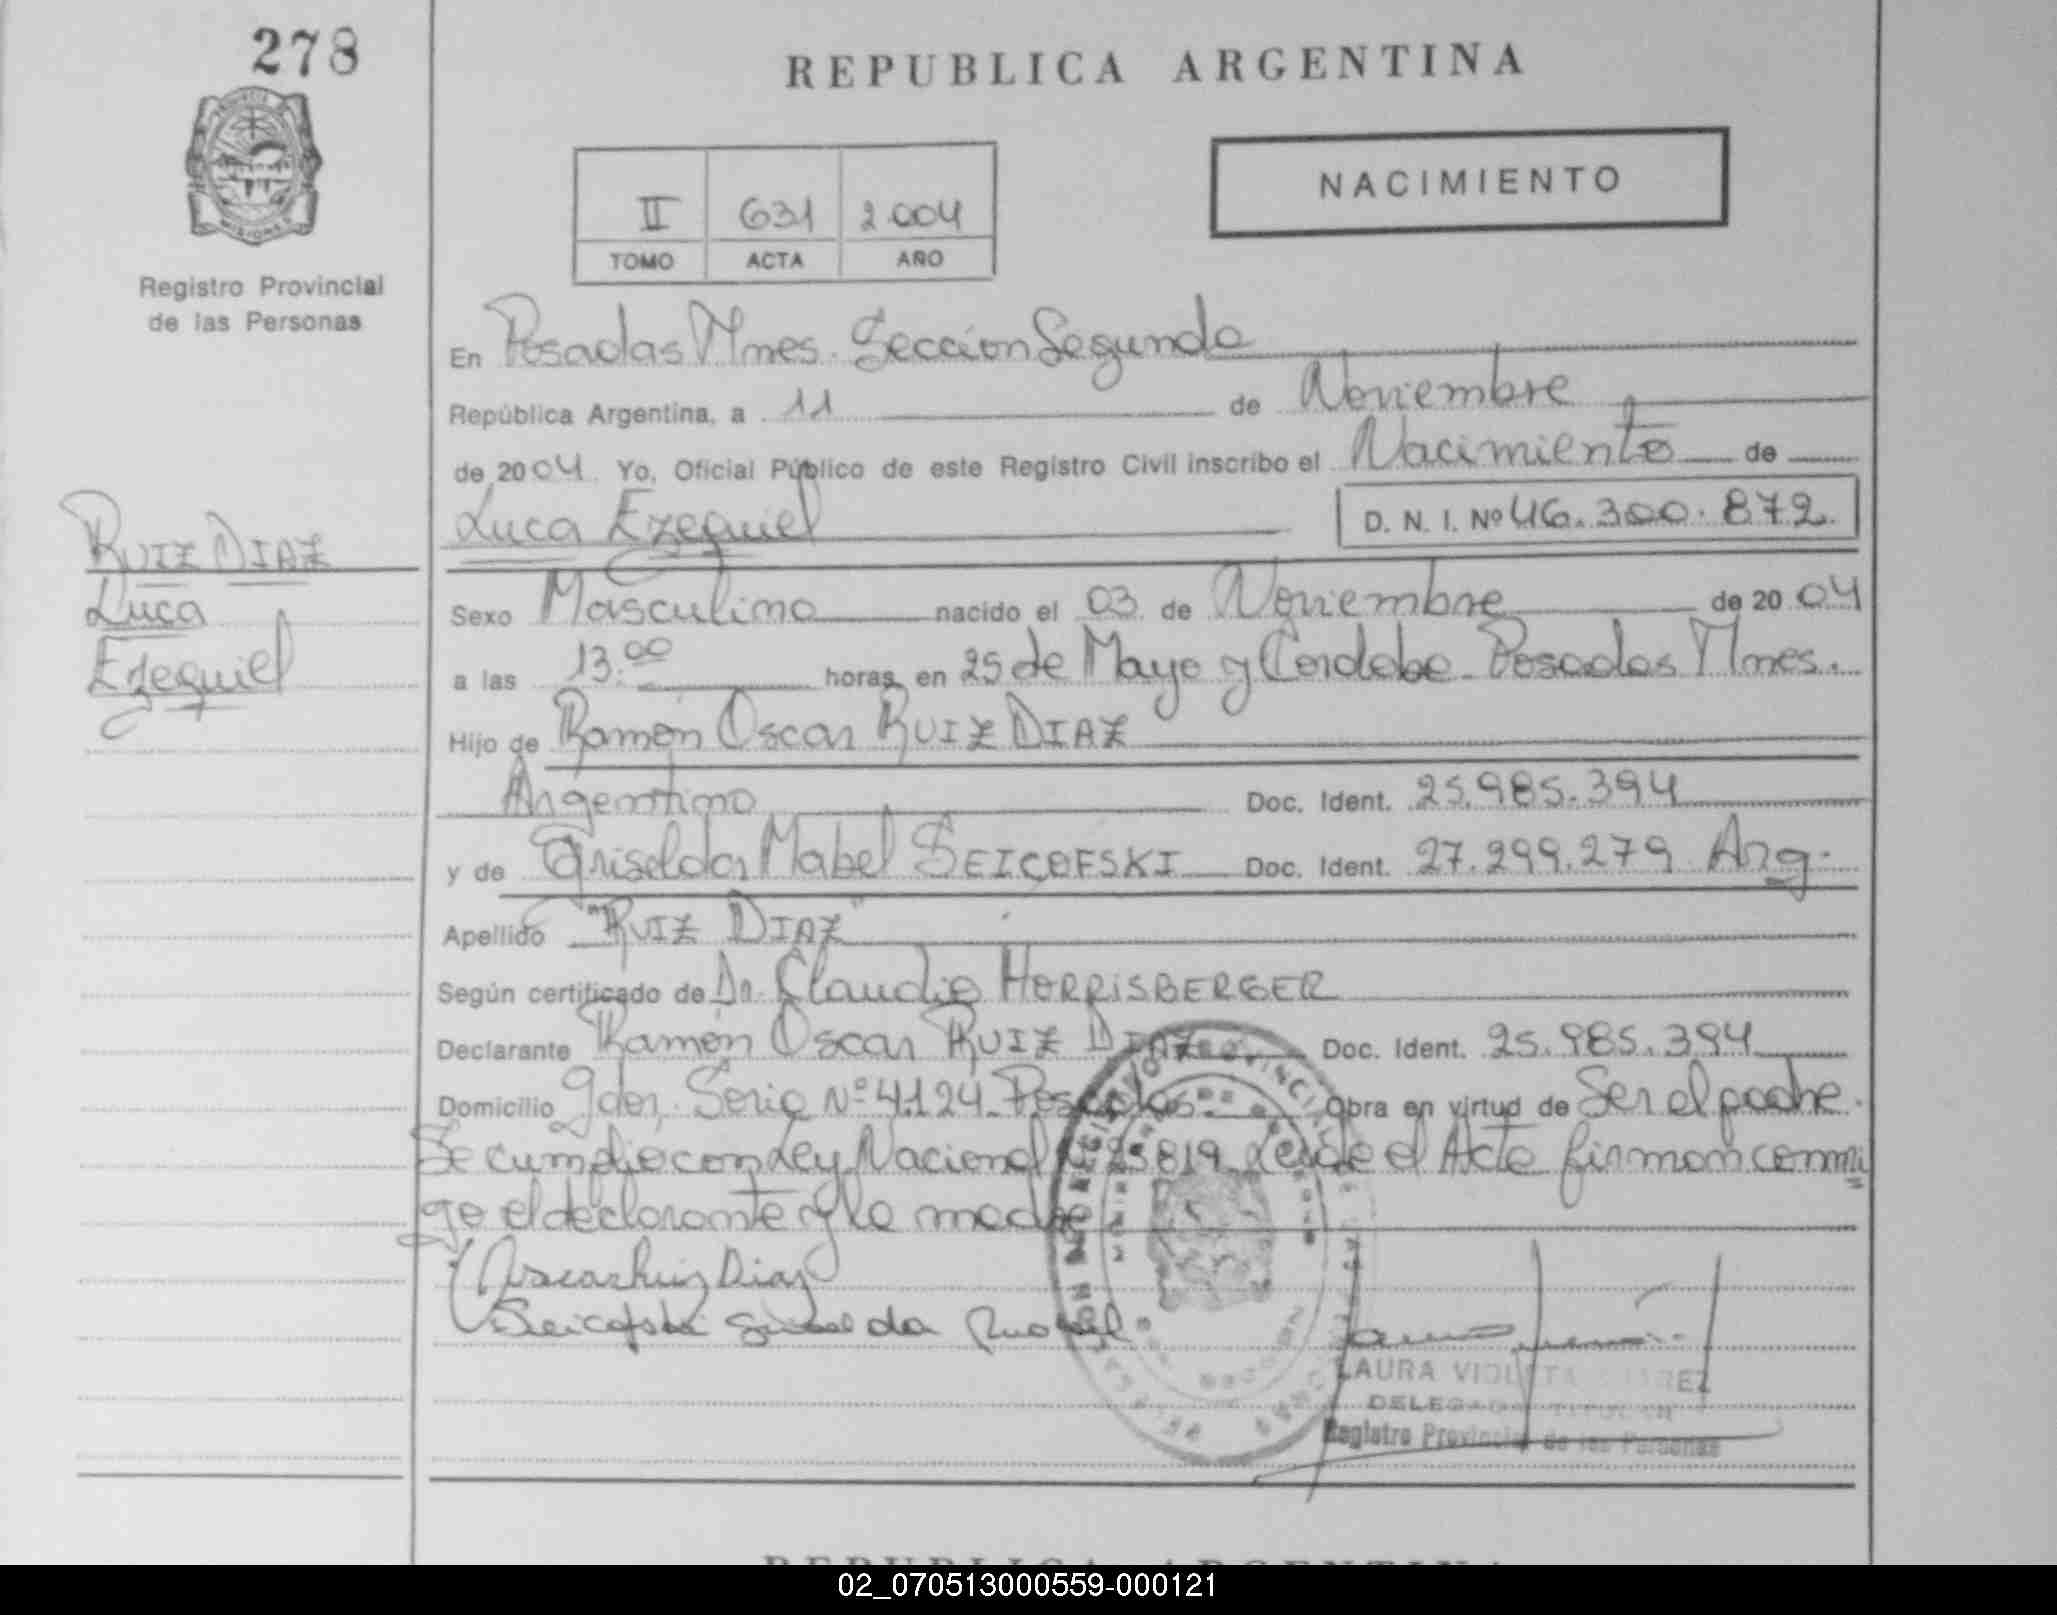 278
REPUBLICA ARGENTINA
NACIMIENTO
II 631 2.004
TOMO ACTA AÑO
Registro Provincial
de las Personas
En Posadas Mnes. Sección Segunda
República Argentina, a 11 de Noviembre
de 2004. Yo, Oficial Público de este Registro Civil inscribo el Nacimiento de
Luca Ezequiel D. N. I. Nº 46.300.872.
RUIZ DIAZ
Luca
Ezequiel
Sexo Masculino nacido el 03 de Noviembre de 2004
a las 13:00 horas en 25 de Mayo y Cordoba - Posadas Mnes.
Hijo de Ramón Oscar RUIZ DIAZ
Argentino Doc. Ident. 25.985.394
y de Griselda Mabel SEICOFSKI Doc. Ident. 27.299.279 Arg.
Apellido "RUIZ DIAZ"
Según certificado de Dr. Claudio HORRISBERGER
Declarante Ramón Oscar RUIZ DIAZ Doc. Ident. 25.985.394
Domicilio gdor. Soria Nº 4124 - Posadas. Obra en virtud de Ser el padre.
Se cumplio con Ley Nacional 25819 Leida el Acta firman conmi
go el declarante y la madre
Oscar Ruiz Diaz
Seicofski Griselda Mabel
LAURA VIOLETA
DELEGADA TITULAR
Registro Provincial de las Personas
REPUBLICA ARGENTINA
02_070513000559-000121